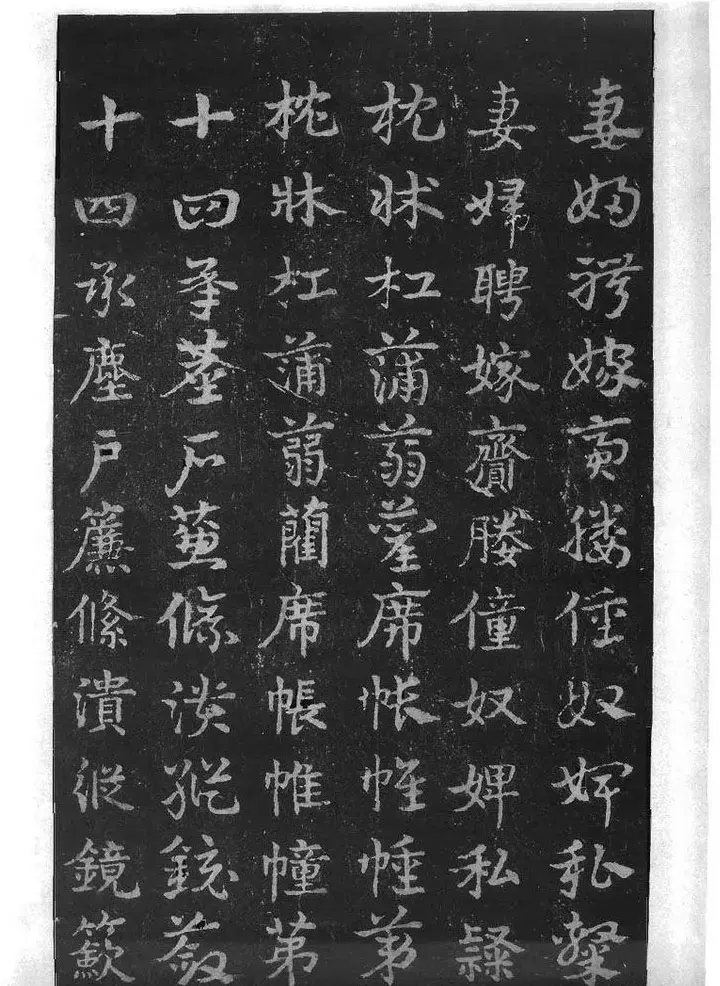 妻婦聘嫁齎媵僮奴婢私隸
妻婦聘嫁齎媵僮奴婢私隸
枕牀杠蒲蒻藺席帳帷幢苐
枕牀杠蒲蒻藺席帳帷幢苐
十四承塵戶簾絛潰縱鏡
十四承塵戶簾絛潰縱鏡